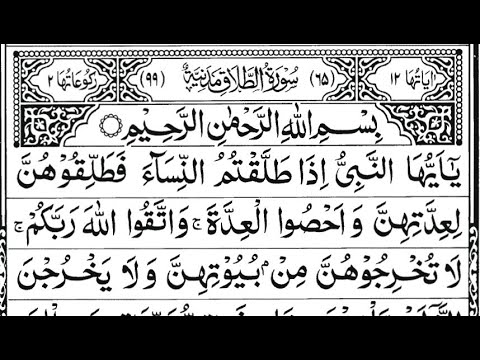 اٰیَاتُهَا ١٢ (٦٥) سُوْرَةُ الطَّلَاقِ مَدَنِیَّةٌ (٩٩) رُكُوْعَاتُهَا ٢
بِسْمِ اللّٰهِ الرَّحْمٰنِ الرَّحِیْمِ
یٰۤاَیُّهَا النَّبِیُّ اِذَا طَلَّقْتُمُ النِّسَآءَ فَطَلِّقُوْهُنَّ
لِعِدَّتِهِنَّ وَ اَحْصُوا الْعِدَّةَ ۚ وَ اتَّقُوا اللّٰهَ رَبَّكُمْ ۚ
لَا تُخْرِجُوْهُنَّ مِنْۢ بُیُوْتِهِنَّ وَ لَا یَخْرُجْنَ